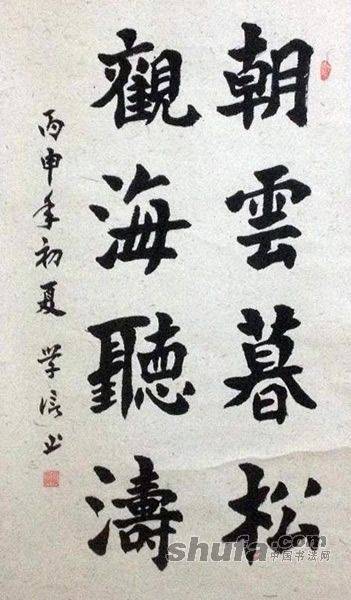 朝雲暮松
觀海聽濤
丙申年初夏 学信书
shufa.com
中国书法网